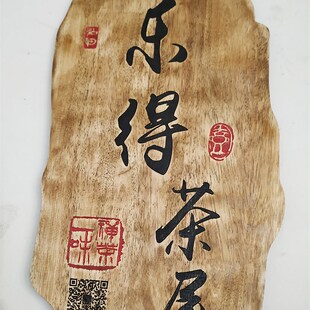 乐得茶居
禅茶
一味